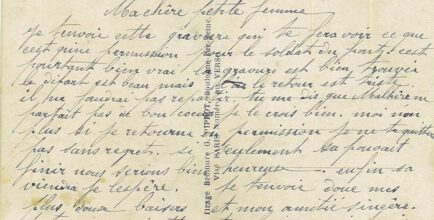 Ma chère petite femme
Je t'envoie cette gravure qui te fera voir ce que
c'est qu'une permission pour le soldat du front. c'est
pourtant bien vrai la gravure est bien trouvée
le départ est beau mais le retour est triste
il ne faudrait pas repartir. tu me dis que
parfait pas de je le crois bien. moi non
plus si je retourne en permission je ne te quitte
pas sans regret. si seulement ça pouvait
finir nous serions bien heureuse enfin sa
viendra je l'espère. Je t'envoie douce mes
plus doux baisers et mon amitié sincère.
Image Brochure G. DUPUY, Boulogne-sur-Seine.
Visé PARIS. Numéro au VERSO.